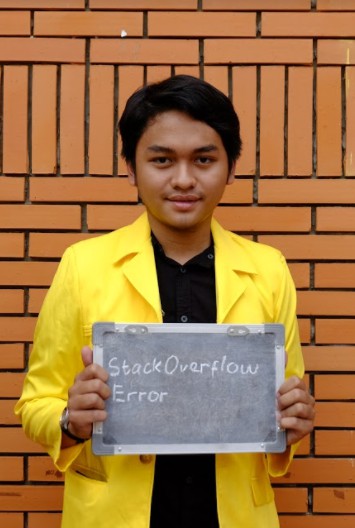 StackOverflow
Error